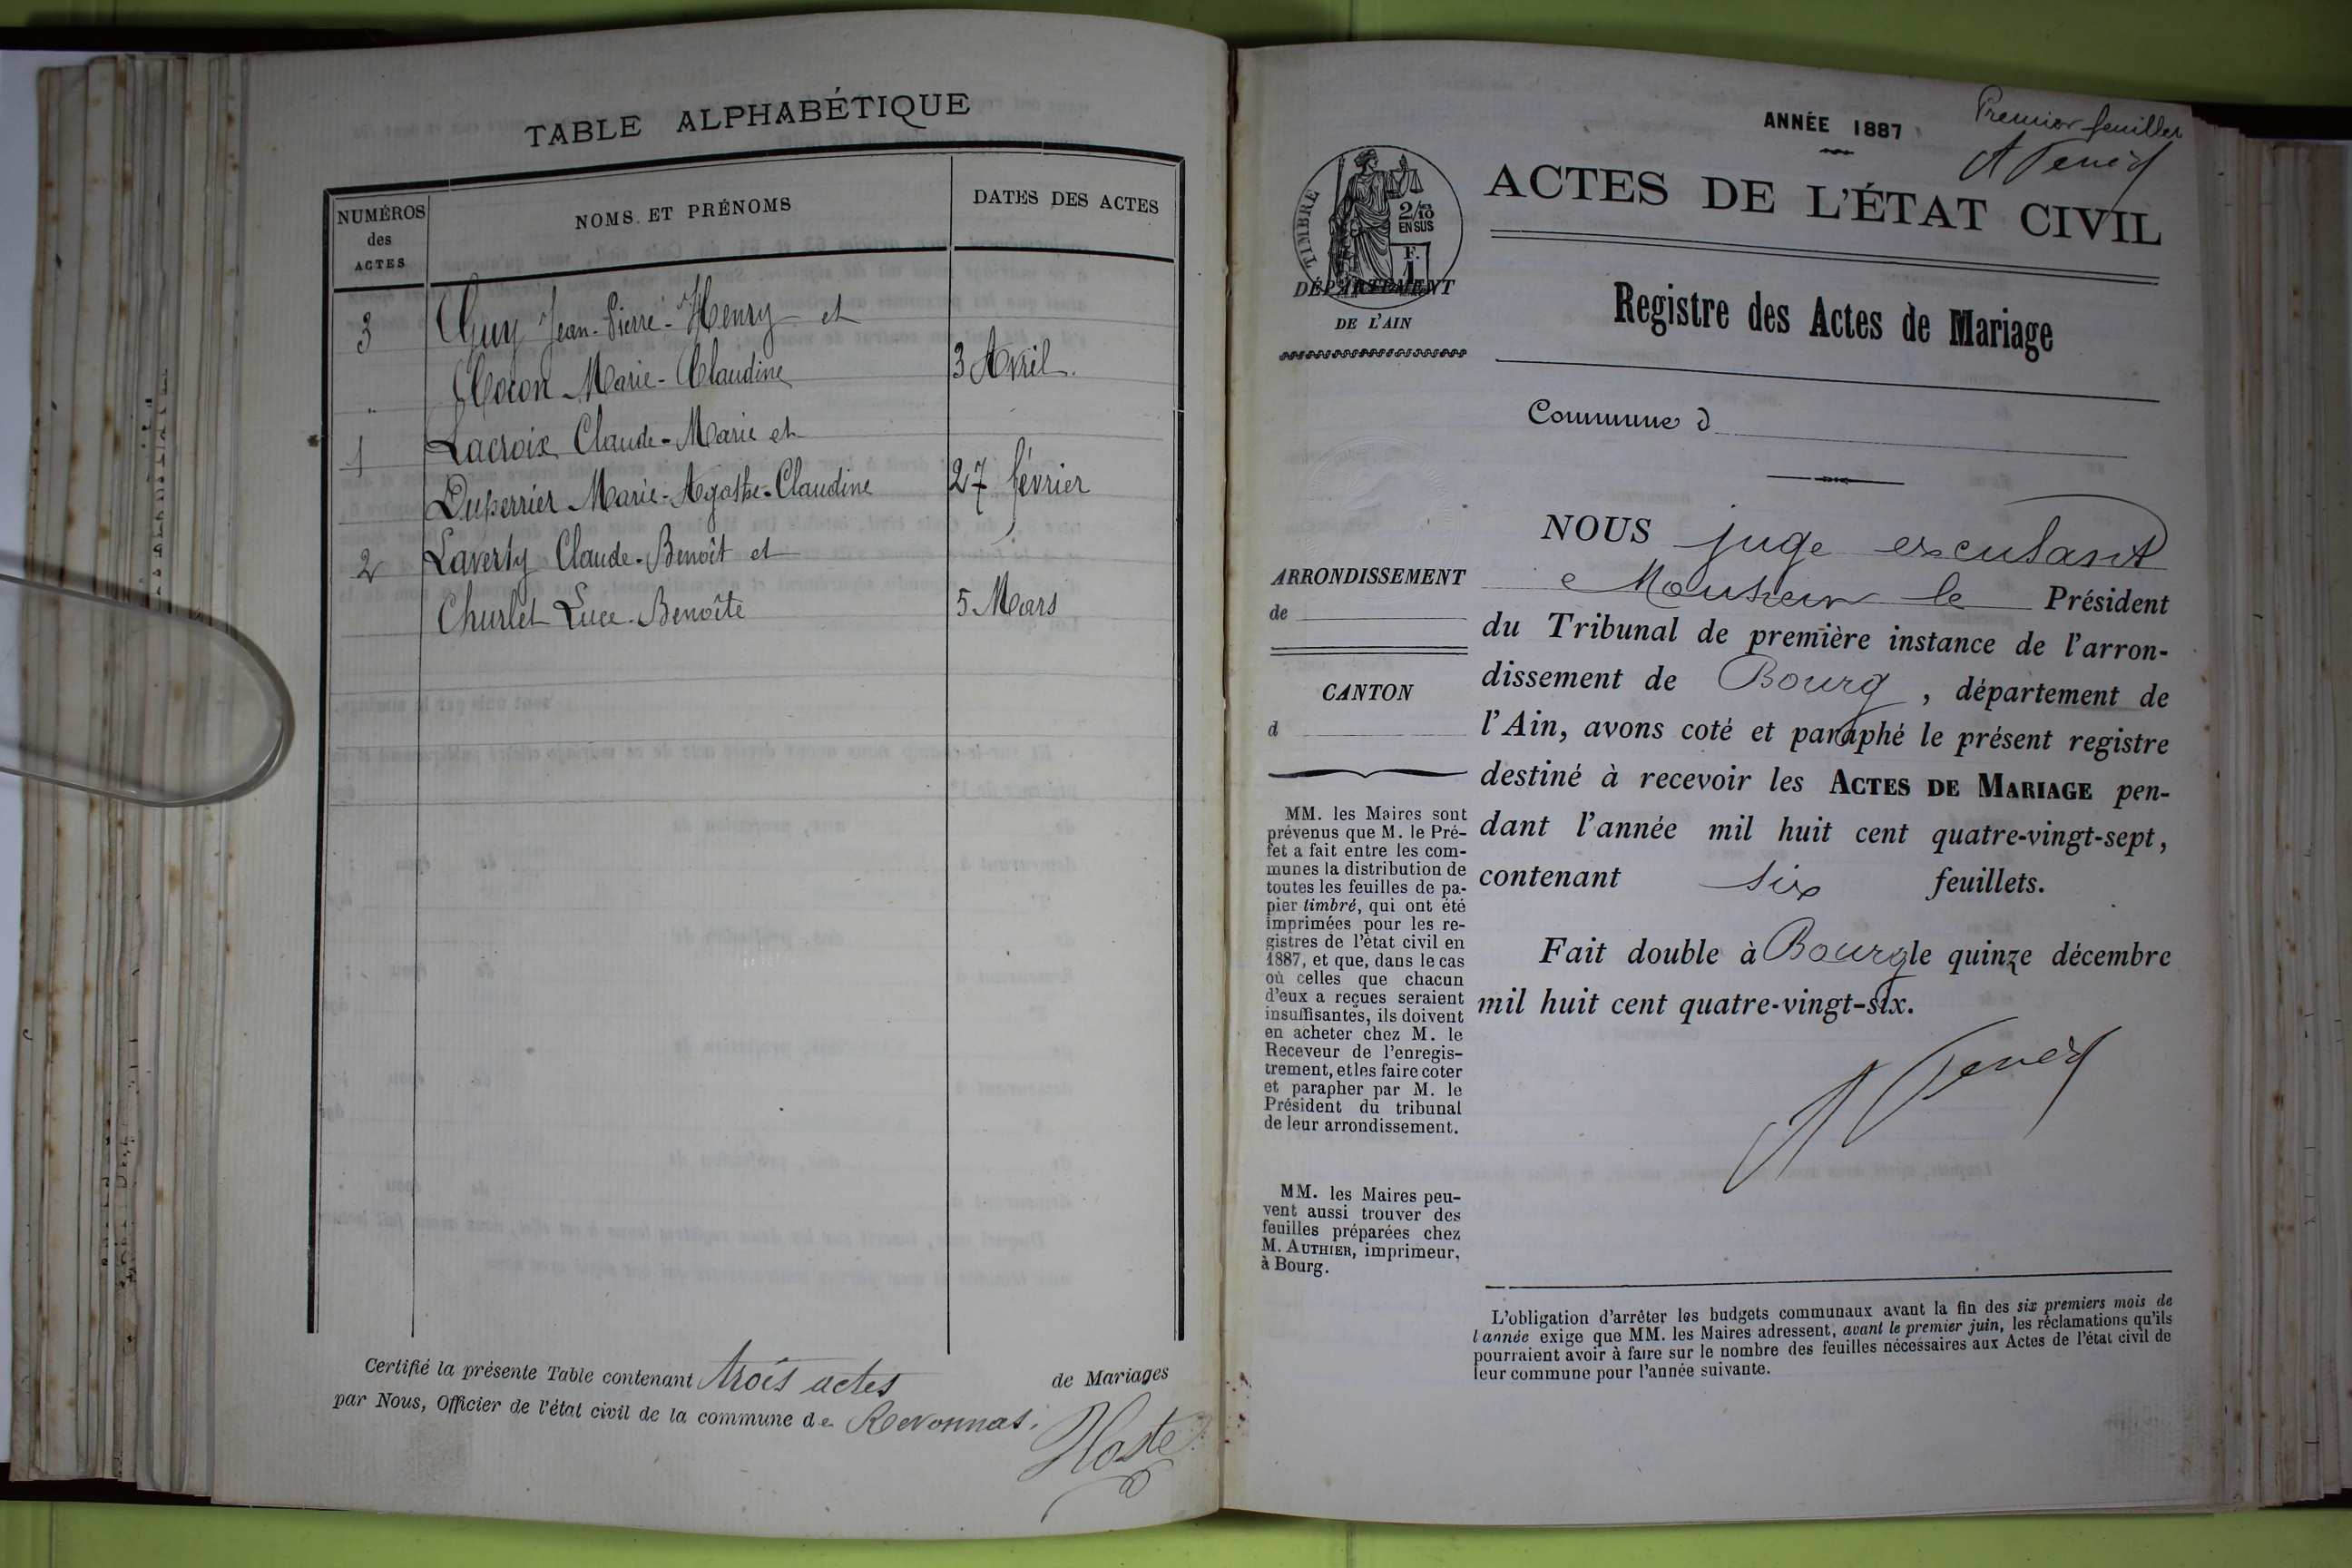 TABLE ALPHABÉTIQUE
NUMÉROS des ACTES
NOMS ET PRÉNOMS
DATES DES ACTES
3 Guy Jean-Pierre-Henry et
" Cocon Marie-Claudine 3 Avril.
1 Lacroix Claude-Marie et
Duperrier Marie-Agathe-Claudine 27 février
2 Laverty Claude-Benoît et
Churlet Luce-Benoîte 5 Mars
Certifié la présente Table contenant trois actes de Mariages
par Nous, Officier de l'état civil de la commune de Revonnas.
ANNÉE 1887
Premier feuillet
ACTES DE L'ÉTAT CIVIL
TIMBRE
2/10
EN SUS
F.
1
DÉPARTEMENT
DE L'AIN
Registre des Actes de Mariage
Commune d
ARRONDISSEMENT
de
CANTON
d
MM. les Maires sont
prévenus que M. le Pré-
fet a fait entre les com-
munes la distribution de
toutes les feuilles de pa-
pier timbré, qui ont été
imprimées pour les re-
gistres de l'état civil en
1887, et que, dans le cas
où celles que chacun
d'eux a reçues seraient
insuffisantes, ils doivent
en acheter chez M. le
Receveur de l'enregis-
trement, et les faire coter
et parapher par M. le
Président du tribunal
de leur arrondissement.
MM. les Maires peu-
vent aussi trouver des
feuilles préparées chez
M. AUTHIER, imprimeur,
à Bourg.
NOUS juge excusant
Monsieur le Président
du Tribunal de première instance de l'arron-
dissement de Bourg, département de
l'Ain, avons coté et paraphé le présent registre
destiné à recevoir les ACTES DE MARIAGE pen-
dant l'année mil huit cent quatre-vingt-sept,
contenant six feuillets.
Fait double à Bourg le quinze décembre
mil huit cent quatre-vingt-six.
L'obligation d'arrêter les budgets communaux avant la fin des six premiers mois de
l'année exige que MM. les Maires adressent, avant le premier juin, les réclamations qu'ils
pourraient avoir à faire sur le nombre des feuilles nécessaires aux Actes de l'état civil de
leur commune pour l'année suivante.